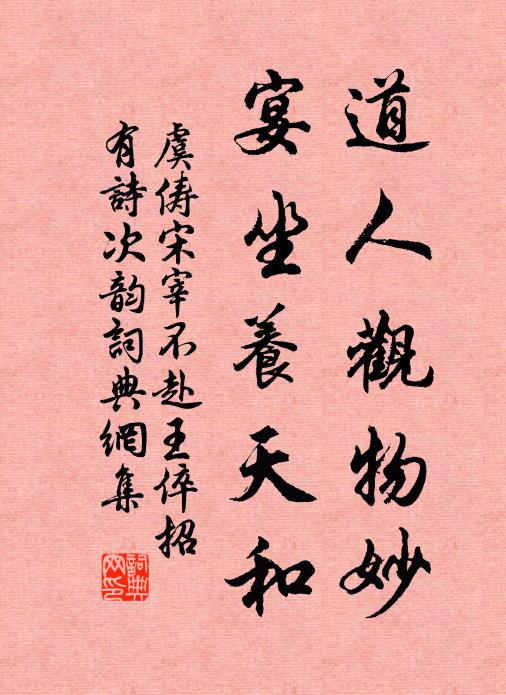 道人觀物妙
宴坐養天和
虞俦宋宰不赴王倅招
有詩次韵詞典網集
詞典
网印